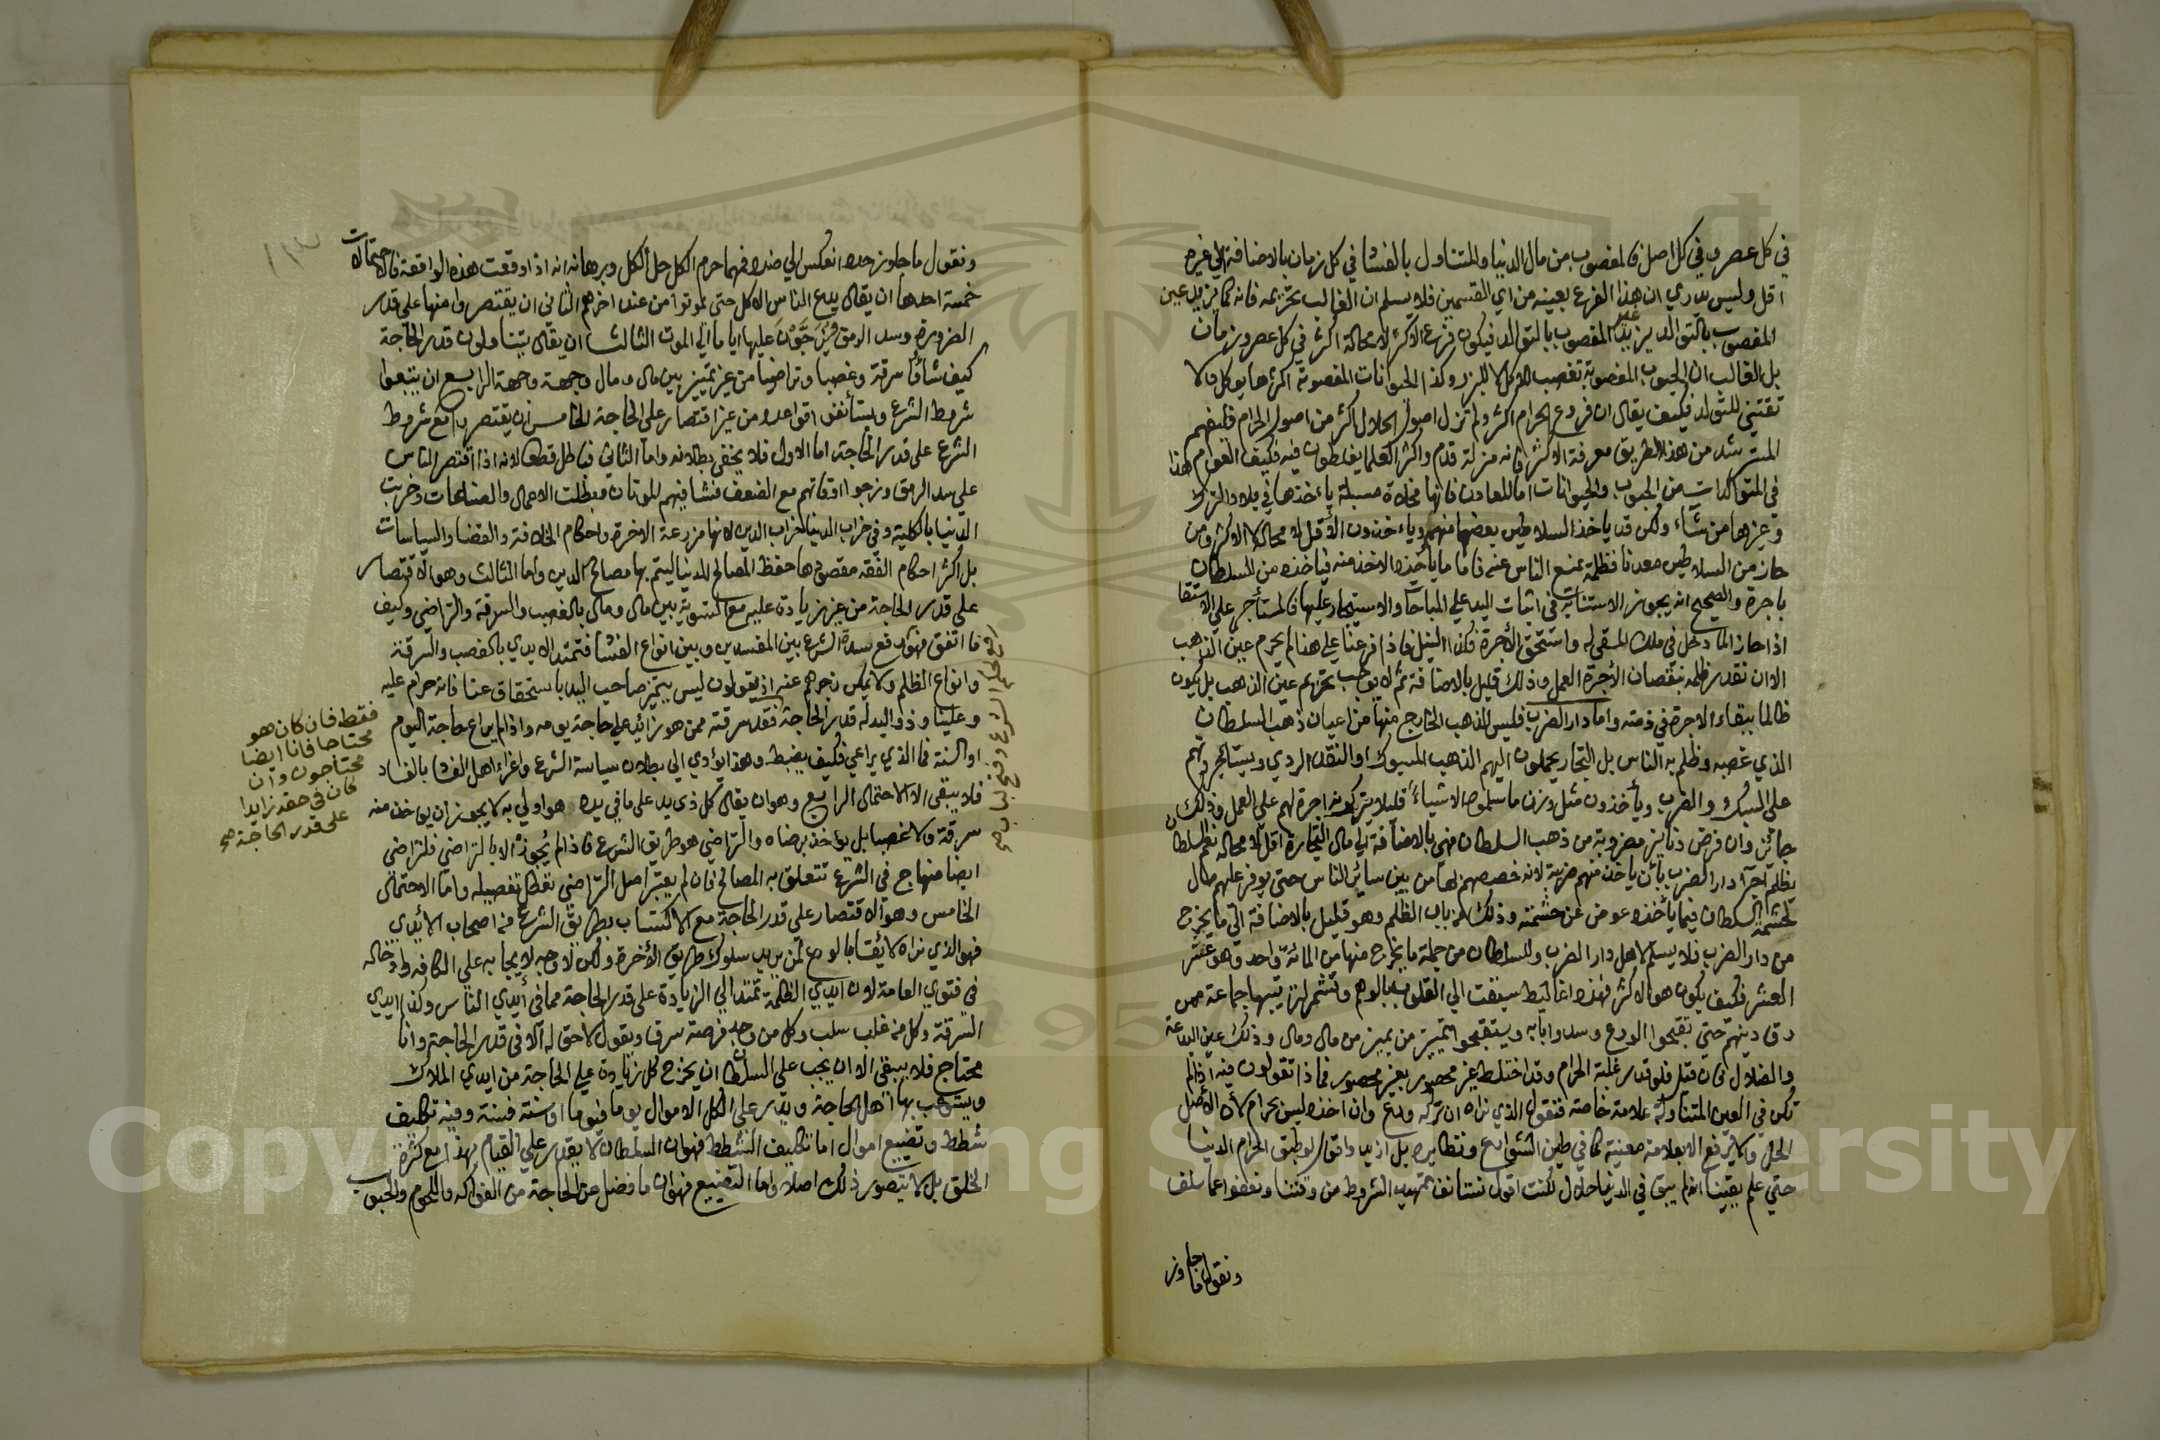 في كل عصر وفي كل اصل فالمغصوب من مال الدنيا والمتناول بالفساد في كل زمان بالاضافة الي غيره
اقل وليس يدري ان هذا الفرع بعينه من اي القسمين فلا يسلم ان الغالب تحريمه فانه كما يزيد عين
المغصوب بالتوالد يزيد غير المغصوب بالتوالد فيكون فرع الاكثر لا محالة اكثر في كل عصر وزمان
بل الغالب ان الحبوب المغصوبة تغصب للاكل لا للبزر وكذا الحيوانات المغصوبة اكثرها يوكل ولا
تقتني للتوالد فكيف يقال ان فروع الحرام اكثر ولم تزل اصول الحلال اكثر من اصول الحرام فليفهم
المسترشد من هذا الطريق معرفة الاكثر فانه منزلة قدم واكثر العلما يغلطون فيه فكيف العوام هذا
في المتوالدات من الحبوب والحيوانات اما المعادن فانها مخلاة مسبلة ياخذها في بلاد الترك
وغيرها من شاء ولكن قد ياخذ السلاطين بعضها منهم وياءخذون الاقل لا محالة لا الاكثر ومن
حاز من السلاطين معدنا فظلمه بمنع الناس عنه فاما ما يأخذه الاخذ منه فياخذه من السلطان
باجرة والصحيح انه يجوز الاستنابة في اثبات اليد علي المباحات والاستيجار عليها فالمستأجر على الاستقا
اذا حاز الماء دخل في ملك المستقى له واستحق الأجرة فكذا النيل فاذا فرعنا علي هذا لم يحرم عين الذهب
الا ان نقدر ظلمه بنقصان الأجرة العمل وذلك قليل بالاضافة ثم لا يوجب تحريم عين الذهب بل يكون
ظالما ببقاء الاجرة في ذمته واما دار الضرب فليس الذهب الخارج منها من اعيان ذهب السلطان
الذي غصبه وظلم به الناس بل التجار يحملون اليهم الذهب المسبوك او النقد الردي ويستأجرونهم
علي السبك والضرب ويأخذون مثل وزن ما سلموه الا شياء قليلا يتركونه اجرة لهم علي العمل وذلك
جائز وان فرض دنانير مضروبة من ذهب السلطان فهي بالاضافة الي مال التجارة اقل لا محالة نعم السلطان
يظلم اجراء دار الضرب بأن يأخذ منهم ضريبة لانه خصصهم لها من بين سائر الناس حتى توفر عليهم مال
لحشمة السلطان فيما يأخذه عوض عن حشمته وذلك من باب الظلم وهو قليل بالاضافة الى ما يخرج
من دار الضرب فلا يسلم لاهل دار الضرب وللسلطان من جملة ما يخرج منها من المائة واحد وهو عشر
العشر فكيف يكون هو الاكثر فهذه اغاليط سبقت الي القلوب بالوهم وتشمر لتزيينها جماعة ممن
رق دينهم حتى تقبحوا الورع وسدوا بابه ويستقبحوا تمييز من يميز من مال ومال وذلك عين البدعة
والضلال فان قيل فلو قدر غلبة الحرام وقد اختلط غير محصور بغير محصور فماذا تقولون فيه اذا لم
تكن في العين المتناولة علامة خاصة فنقول الذي نراه ان تركه ورع وان اخذه ليس بحرام لأن الاصل
الحل ولا يرفع الا بعلامة معينة كما في طين الشوارع ونظايره بل ازيد واقول لو طبق الحرام الدنيا
حتي علم يقينا انه لم يبق في الدنيا حلال لكنت اقول نستانف تمهيد الشروط من وقتنا ونعفوا عما سلف
ونقول ما جاوز
ونقول ما جاوز حده انعكس الي ضده فمهما حرم الكل حل الكل وبرهانه انه اذا وقعت هذه الواقعة فالاحتمالات
خمسة احدها ان يقال يدع الناس الاكل حتى يموتوا من عند اخرهم الثاني ان يقتصروا منها علي قدر
الضرورة وسد الرمق ويزجون عليها اياما الي الموت الثالث ان يقال يتناولون قدر الحاجة
كيف شاؤا سرقة وغصبا وتراضيا من غير تمييز بين مال ومال وجهة وجهة الرابع ان يتبعوا
شروط الشرع ويستأنفوا قواعده من غير اقتصار على الحاجة الخامس ان يقتصروا مع شروط
الشرع على قدر الحاجة اما الاول فلا يخفى بطلانه واما الثاني فباطل قطعا لانه اذا اقتصر الناس
على سد الرمق وزجوا اوقاتهم مع الضعف فشا فيهم الموتان وبطلت الاعمال والصناعات وخربت
الدنيا بالكلية وفي خراب الدنيا خراب الدين لانها مزرعة الاخرة واحكام الخلافة والقضا والسياسات
بل اكثر احكام الفقه مقصودها حفظ المصالح الدنيا ليتم بها مصالح الدين واما الثالث وهو الاقتصار
على قدر الحاجة من غير زيادة عليه مع التسوية بين مال ومال بالغصب والسرقة والتراضي وكيف
ما اتفق فهو رفع سد الشرع بين المفسدين وبين انواع الفساد فتمتد الايدي بالغصب والسرقة
وانواع الظلم ولا يمكن زجرهم عنه اذ يقولون ليس يتميز صاحب اليد باستحقاق عنا فانه حرام عليه
وعلينا وذو اليد له قدر الحاجة فقط فان كان هو
محتاجا فانا ايضا
محتاجون وان
كان في حقه زايدا
على قدر الحاجة صح
فقد سرقته ممن هو زائد علي حاجة يومه واذا لم يراع حاجة اليوم
او السنة فما الذي يراعي فكيف يضبط وهذا يؤدي الى بطلان سياسة الشرع واغراء اهل الفساد بالفساد
فلا يبقى الا الاحتمال الرابع وهو ان يقال كل ذي يد على ما في يده هو اولي به لا يجوز ان يوءخذ منه
سرقة ولا غصبا بل يوءخذ برضاه والتراضي هو طريق الشرع فاذا لم يجوز الا بالتراضي فللتراضي
ايضا منهاج في الشرع تتعلق به المصالح فان لم يعتبر اصل التراضي تعطل تفصيله واما الاحتمال
الخامس وهو الاقتصار على قدر الحاجة مع الاكتساب بطريق الشرع من اصحاب الايدي
فهو الذي نراه لائقا بالورع لمن يريد سلوك طريق الآخرة ولكن لا وجه لايجابه علي الكافه وادخاله
في فتوي العامة لان ايدي الظلمة تمتد الي الزيادة على قدر الحاجة مما في أيدي الناس وكذا ايدي
السرقة وكل من غلب سلب وكل من وجد فرصة سرق ويقول لا حق له الا في قدر الحاجة وانا
محتاج فلا يبقي الا ان يجب على السلطان ان يخرج كل زيادة علي الحاجة من ايدي الملاك
ويستوعب بها اهل الحاجة ويدر على الكل الاموال يوما فيوما او سنة فسنة وفيه تكليف
شطط وتضييع اموال اما تكليف الشطط فهو ان السلطان لا يقدر علي القيام بهذا مع كثرة
الخلق بل لا يتصور ذلك اصلا واما التضييع فهو ان ما فضل عن الحاجة من الفواكه واللحوم والحبوب
Copyright © King Saud University